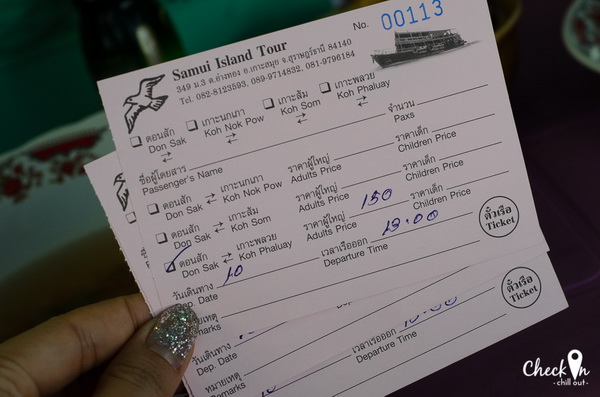 No. 00113
Samui Island Tour
349 ม.3 ต.อ่างทอง อ.เกาะสมุย จ.สุราษฎร์ธานี 84140
Tel. 082-8123593, 089-9714832, 081-9796184
ดอนสัก เกาะนกเภา เกาะส้ม เกาะพลวย
Don Sak Koh Nok Pow Koh Som Koh Phaluay
ชื่อผู้โดยสาร จำนวน
Passenger's Name Paxs
ดอนสัก เกาะนกเภา ราคาผู้ใหญ่ ราคาเด็ก
Don Sak ⇄ Koh Nok Pow Adults Price Children Price
ดอนสัก เกาะส้ม ราคาผู้ใหญ่ ราคาเด็ก
Don Sak ⇄ Koh Som Adults Price Children Price
ดอนสัก เกาะพลวย ราคาผู้ใหญ่ 150 ราคาเด็ก
Don Sak ⇄ Koh Phaluay Adults Price Children Price
วันเดินทาง 10 เวลาเรือออก 13.00
Dep. Date Departure Time
ตั๋วเรือ
Ticket
วันเดินทาง เวลาเรือออก
Dep. Date Departure Time
หมายเหตุ
Remarks
ตั๋วเรือ
Ticket
Check In
- chill out -